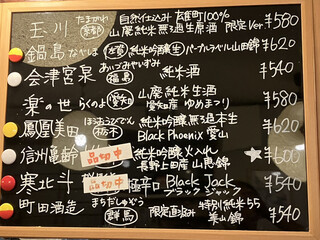 玉川 たまがわ 京都 自然仕込み 雄町100%
山廃純米無ろ過生原酒 限定Ver ¥580
鍋島 なべしま 佐賀 純米吟醸生 パープルラベル山田錦 ¥620
会津宮泉 あいづみやいずみ 福島 純米酒 ¥540
楽の世 らくのよ 愛知 山廃純米生酒
愛知産 ゆめまつり ¥580
鳳凰美田 ほうおうびでん 栃木 純米吟醸無ろ過本生
Black Phoenix 愛山 ¥620
信州亀齢 品切中 純米吟醸火入れ
長野上田産山恵錦 ☆¥600
寒北斗 品切中 極辛口 Black Jack
ブラックジャック ¥540
町田酒造 まちだしゅぞう 群馬 限定直汲み 特別純米55
美山錦 ¥540